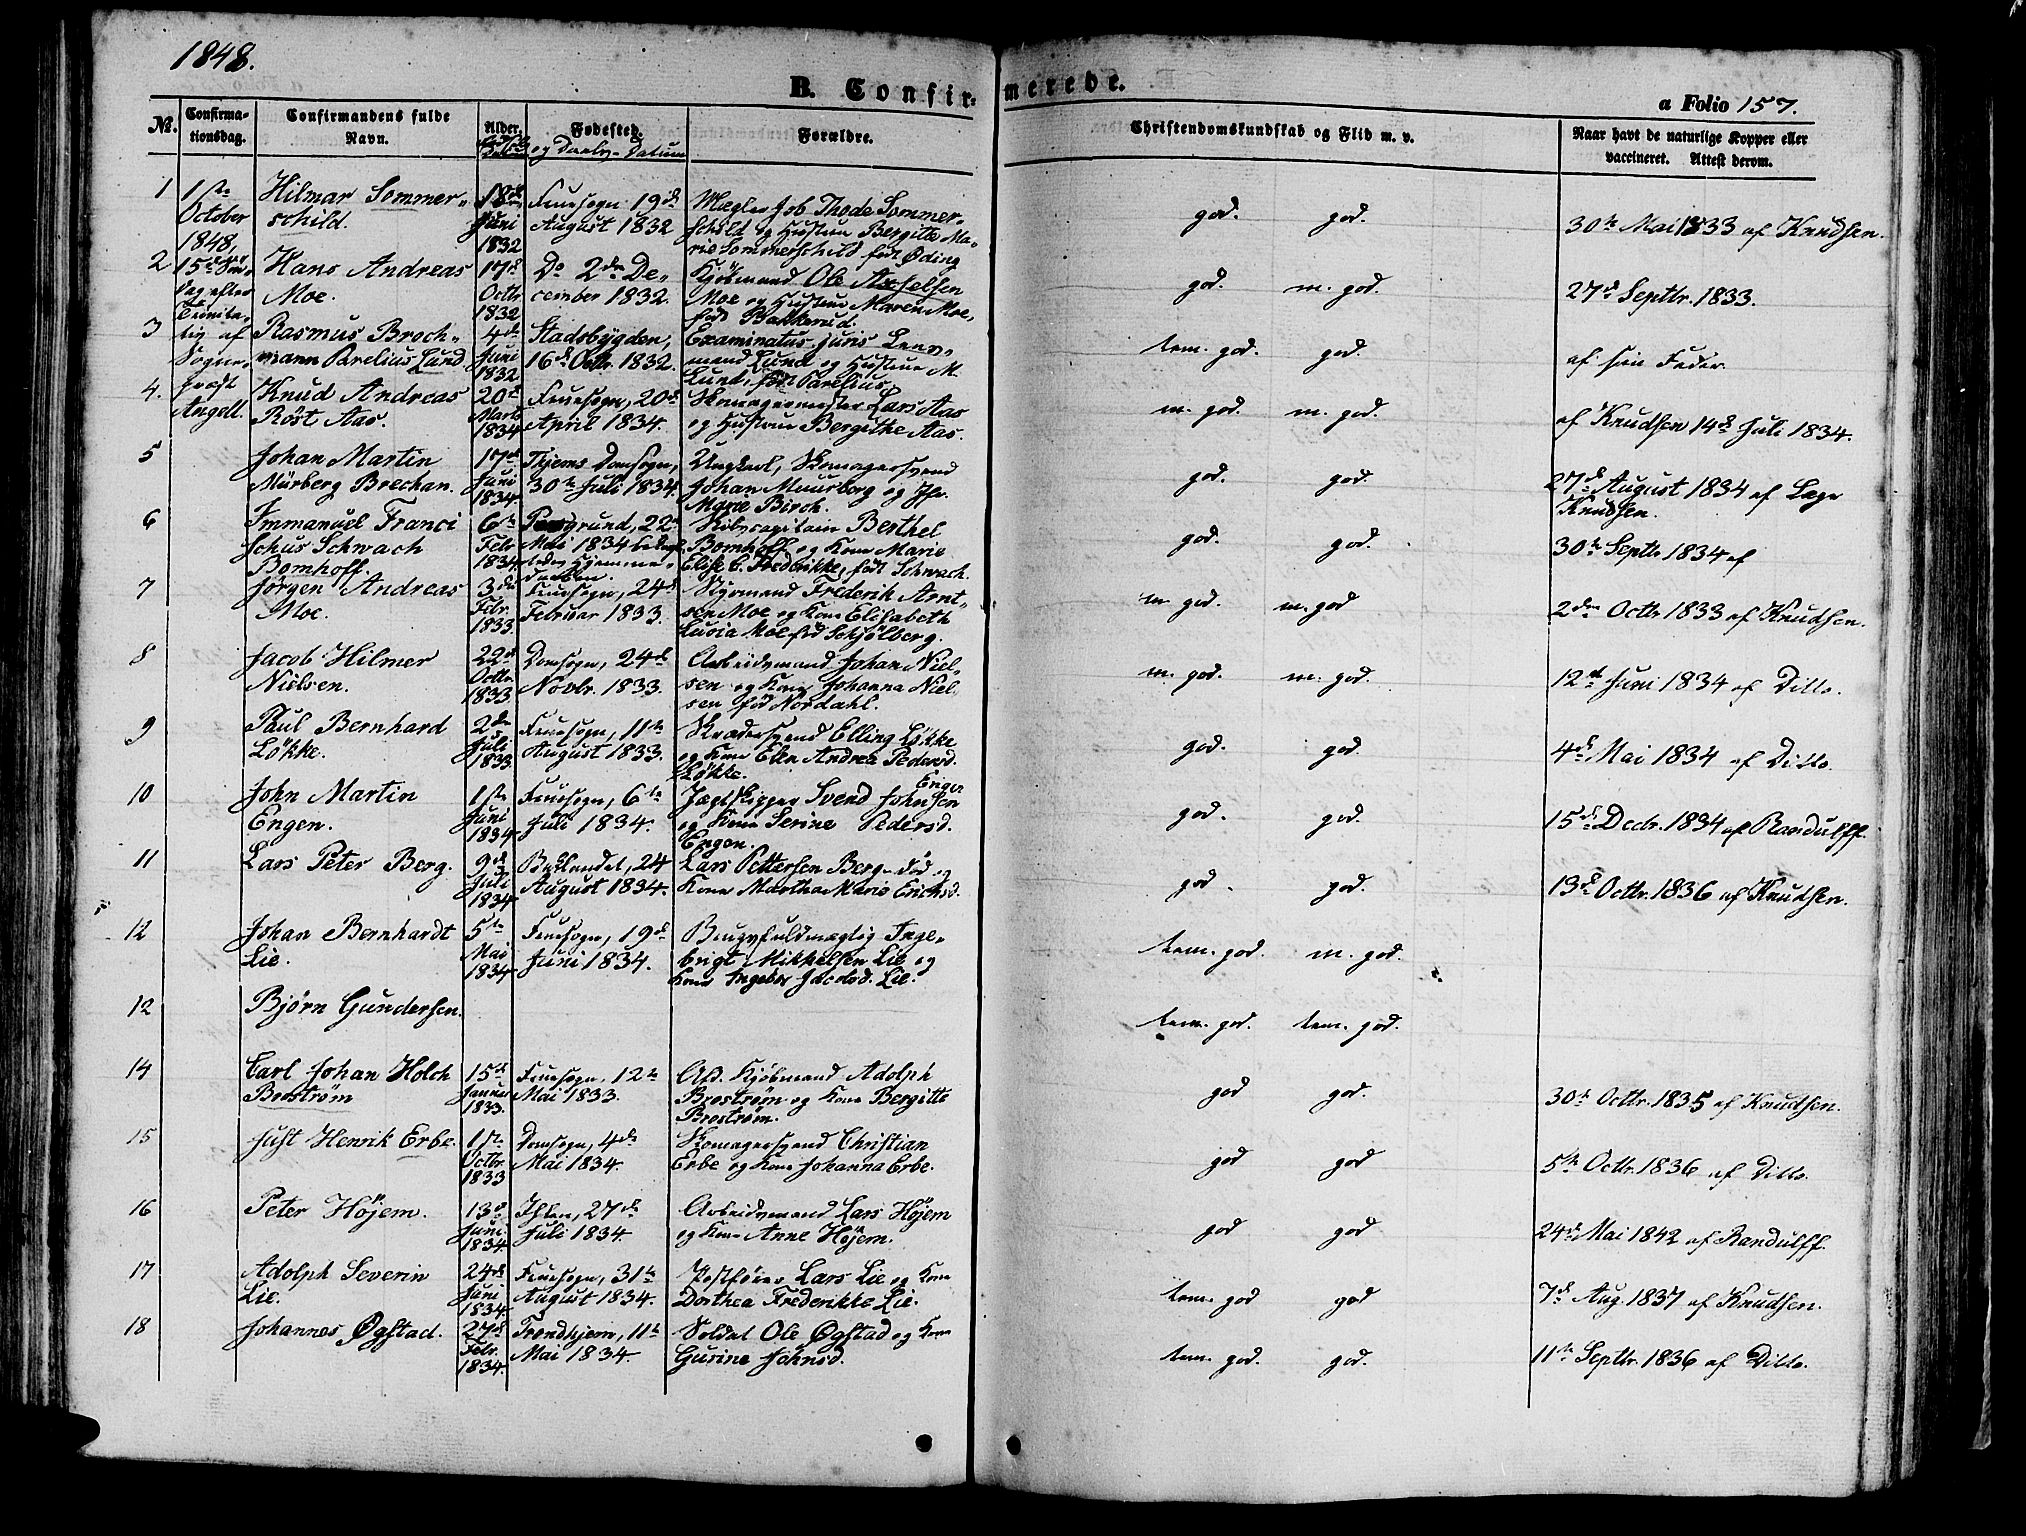 1848.
B. Confirmerede.
a Folio 157.
No. Confirmationsdag. Confirmandens fulde Navn. Alder. Fødested. og Daabs-Datum Forældre. Christendomskundskab og Flid m. v. Naar havt de naturlige Kopper eller vaccineret. Attest derom.
1ste October 1848, 15de Søndag efter Trinitatis af Sogneprest Angell.
1 Hilmar Sommerschild. 18de Juni 1832 Fruesogn 19de August 1832 Mægler Job Thode Sommerschild og Hustru Bergitte Marie Sommerschild født Øding god. god. 30te Mai 1833 af Knudsen.
2 Hans Andreas Moe. 17de Octbr 1832 Do 2den December 1832. Kjøbmand Ole Axelsen Moe og Hustrue Maren Moe, født Bakkerud. god. m. god. 27de Septbr. 1833.
3 Rasmus Brochmann Parelius Lund 4de Juni 1832 Stadsbygden, 16de Octbr. 1832. Examinatus juris Lensmand Lund og Hustrue M. Lund, født Parelius. tem. god. god. af sin Fader.
4. Knud Andreas Röst Aas. 20de Marts 1834 Fruesogn, 20de April 1834. Skomagermester Lars Aas og Hustrue Bergithe Aas. m. god. m. god. af Knudsen 14de Juli 1834.
5 Johan Martin Mürberg Brechan. 17de Juni 1834 Thjems Domsogn, 30te Juli 1834. Ungkarl, Skomagersvend Johan Muurberg og Birch. god. god. 27de August 1834 af Læge Knudsen.
6 Immanuel Francischus Schwach Bomhoff. 6te Febr 1834 Porsgrund, 22de Mai 1834 Hjemmedaaben. Skibscapitain Berthel Bomhoff og Kone Marie Elise C. Fredrikke, født Schwach. god. god. 30te Septbr 1834 af
7 Jörgen Andreas Moe. 3die Febr. 1833. Fruesogn, 24de Februar 1833. Frederik Arntsen Moe og Kone Elisabeth Lucia Moe fød Schjølberg. m god. m. god 2den Octbr 1833 af Knudsen.
8 Jacob Hilmer Nielsen. 22de Octbr. 1833 Domsogn, 24de Novbr. 1833. Arbeidsmand Johan Nielsen og Kone Johanna Nielsen fød Nordahl. m. god. m. god. 12te Juni 1834 af Ditto.
9 Paul Bernhard Løkke. 2den Juli 1833. Fruesogn, 11te August 1833. Skrædersvend Elling Løkke og Kone Elen Andrea Pedersd. Løkke. god. god. 4de Mai 1834 af Ditto.
10 John Martin Engen. 1ste Juni 1834 Fruesogn, 6te Juli 1834. Jægtskipper Svend Johnsen Engen og Kone Serine Pedersd. Engen. god. god. 15de Decbr. 1834 af Randulff.
11 Lars Peter Berg. 9de Juli 1834 Baklandet, 24 August 1834. Lars Pettersen Berg-død og Kone Martha Marie Erichsd. god. god. 13de Octbr. 1836 af Knudsen.
12 Johan Bernhardt Lie. 5te Mai 1834 Fruesogn, 19de Juni 1834. Brugsfuldmægtig Ingebrigt Mikkelsen Lie og Kone Ingebor Jacobsd. Lie. tem. god. m. god.
12 Bjørn Gundersen. tem. god. tem. god.
14 Carl Johan Holch Broström 15de Januar 1833. Fruesogn, 12te Mai 1833. Afd. Kjøbmand Adolph Broström og Kone Bergitte Broström. god god. 30te Octbr. 1835 af Knudsen.
15 Just Henrik Erbe. 1ste Octbr. 1833 Domsogn, 4de Mai 1834. Skomagersvend Christian Erbe og Kone Johanna Erbe. god god 5te Octbr. 1836 af Ditto.
16 Peter Højem. 13de Juni 1834. Ihlen, 27de Juli 1834. Arbeidsmand Lars Højem og Kone Anne Höjem. god god 24de Mai 1842 af Randulff.
17 Adolph Severin Lie. 24de Juni 1834. Fruesogn, 31te August 1834. Postfører Lars Lie og Kone Dorthea Frederikke Lie. tem. god god 7de Aug. 1837 af Knudsen.
18 Johannes Øgstad. 27de Febr. 1834. Trondhjem, 11te Mai 1834. Soldat Ole Øgstad og Kone Gurine Johnsd. tem. god. god. 11te Septbr. 1836 af Ditto.